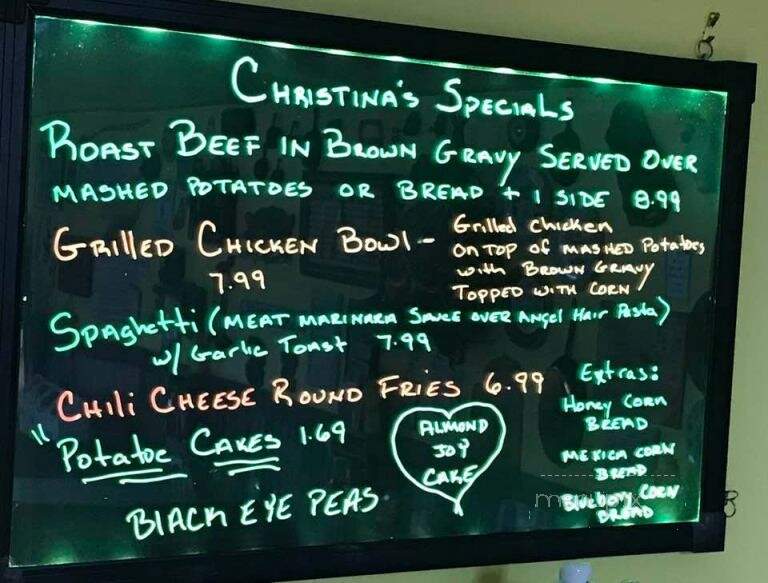 CHRISTINA'S SPECIALS
ROAST BEEF IN BROWN GRAVY SERVED OVER
MASHED POTATOES OR BREAD + 1 SIDE 8.99
GRILLED CHICKEN BOWL -
7.99
Grilled chicken
ON TOP OF MASHED Potatoes
with BROWN GRAVY
TOPPED WITH CORN
Spaghetti (MEAT MARINARA SAUCE OVER ANGEL HAIR Pasta)
w/ Garlic Toast 7.99
CHILI CHEESE ROUND FRIES 6.99
"Potatoe CAKES 1.69
BLACK EYE PEAS
ALMOND
JOY
CAKE
Extras:
Honey CORN
BREAD
MEXICA CORN
BREAD
CORN
BREAD